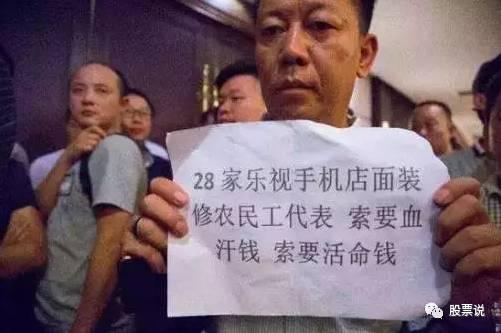 28 家乐视手机店面装
修农民工代表 索要血
汗钱 索要活命钱
股票说